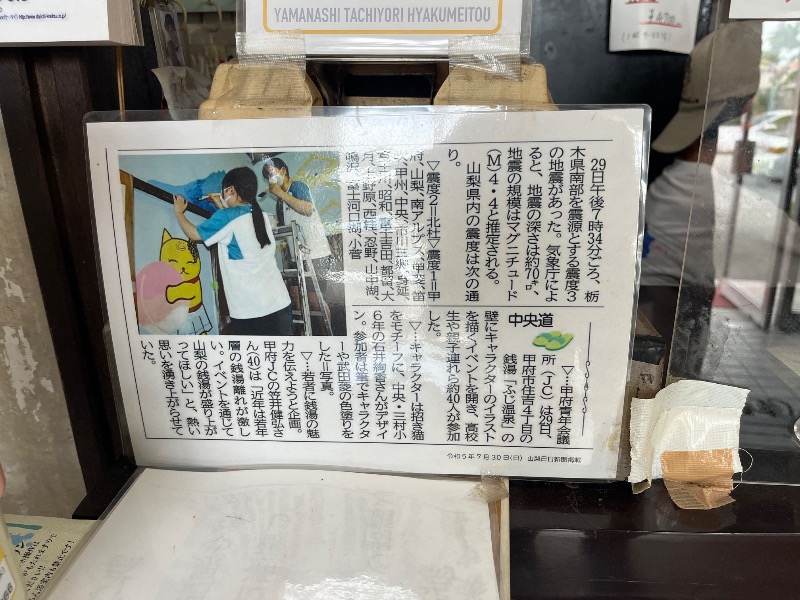 YAMANASHI TACHIYORI HYAKUMEITOU
29日午後7時34分ごろ、栃
木県南部を震源とする震度3
の地震があった。気象庁によ
ると、地震の深さは約70㌔、
地震の規模はマグニチュード
(M)4・4と推定される。
山梨県内の震度は次の通
り。
▽震度2=北杜▽震度1=甲
府、山梨、南アルプス、甲斐、笛
吹、甲州、中央、市川三郷、身延、
富士川、昭和、富士吉田、都留、大
月、上野原、西桂、忍野、山中湖、
鳴沢、富士河口湖、小菅
中央道
▽…甲府青年会議
所(JC)は29日、
甲府市住吉4丁目の
銭湯「ふじ温泉」の
壁にキャラクターのイラスト
を描くイベントを開き、高校
生や親子連れら約40人が参加
した。
▽…キャラクターは招き猫
をモチーフに、中央・三村小
6年の石井絢蜜さんがデザイ
ン。参加者は筆でキャラクタ
ーや武田菱の色塗りを
した=写真。
▽…若者に銭湯の魅
力を伝えようと企画。
甲府JCの笠井健弘さ
ん(40)は「近年は若年
層の銭湯離れが激し
い。イベントを通じて
山梨の銭湯が盛り上が
ってほしい」と、熱い
思いを湧き上がらせて
いた。
令和5年7月30日(日) 山梨日日新聞掲載